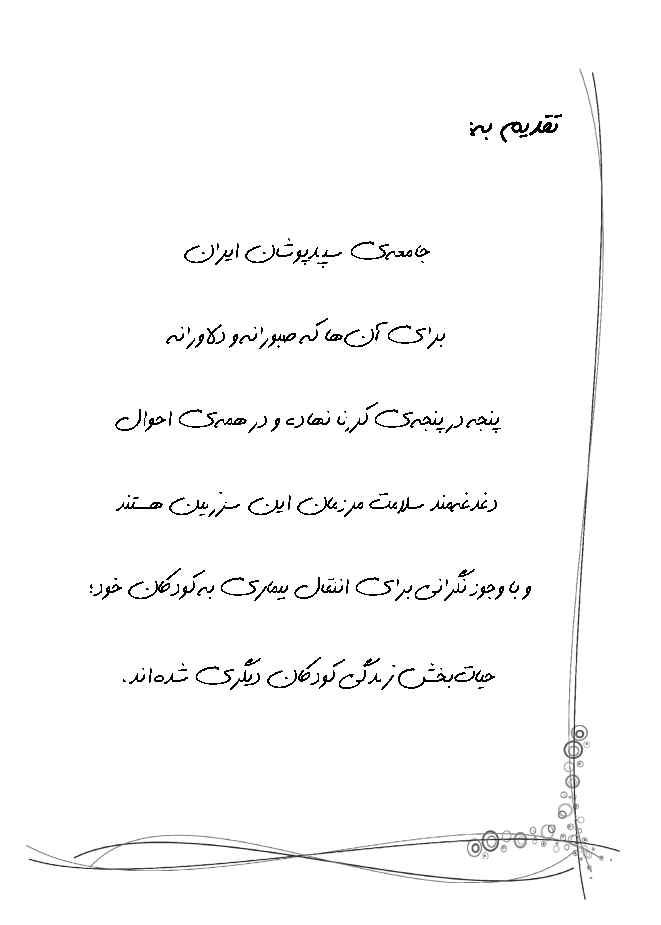 تقدیم به:
جامعه‌ی سپیدپوشان ایران
برای آن‌ها که صبورانه و دلاورانه
پنجه در پنجه‌ی کرنا نهاده و در همه‌ی احوال
دغدغه‌مند سلامت مردمان این سرزمین هستند
و با وجود نگرانی برای انتقال بیماری به کودکان خود؛
حیات‌بخش زندگی کودکان دیگری شده‌اند.